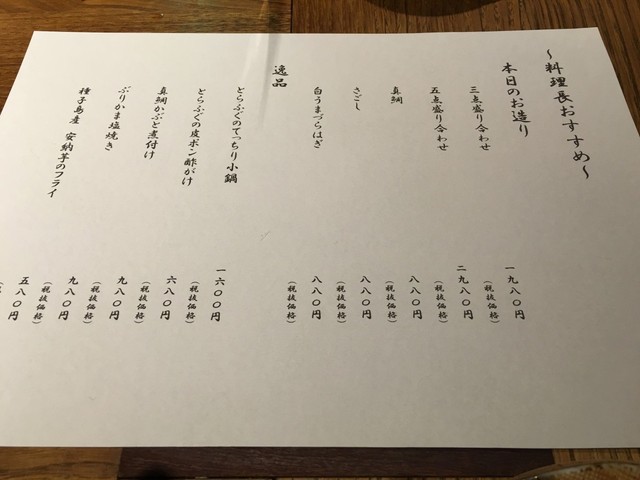 ～料理長おすすめ～
本日のお造り
三点盛り合わせ 一九八〇円
(税抜価格)
五点盛り合わせ 二九八〇円
(税抜価格)
真鯛 八八〇円
(税抜価格)
さごし 八八〇円
(税抜価格)
白うまづらはぎ 八八〇円
(税抜価格)
逸品
とらふぐのてっちり小鍋 一六〇〇円
(税抜価格)
とらふぐの皮ポン酢がけ 六八〇円
(税抜価格)
真鯛かぶと煮付け 九八〇円
(税抜価格)
ぶりかま塩焼き 九八〇円
(税抜価格)
種子島産 安納芋のフライ 五八〇円